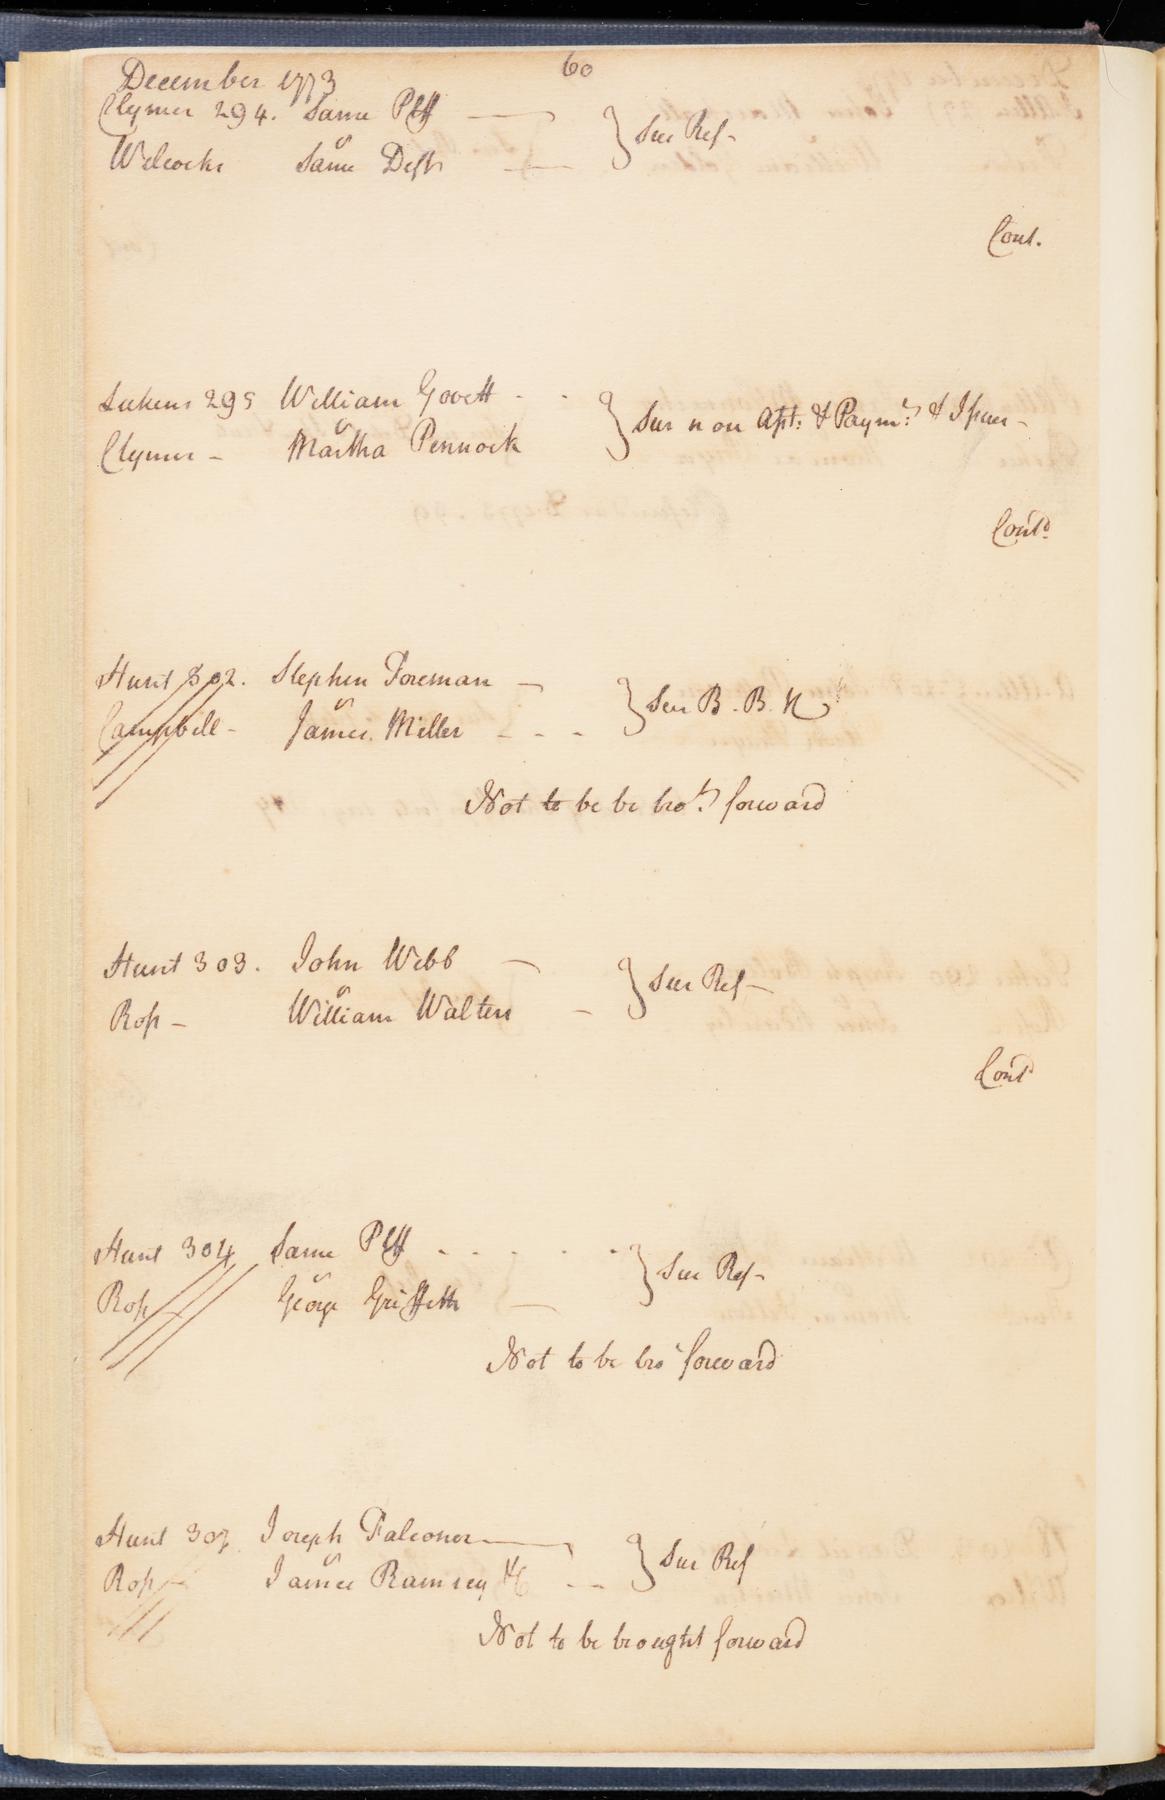 60
December 1773
Clymer 294. Same Plff } Sur Ref-
v
Wilcocks Same Deft
Cont.
Lukens 295 William Govett - - } Sur non Apt: & Paymt: & Issues -
v
Clymer - Martha Pennock
Contd
Hunt 302. Stephen Foreman - } Sur B. B. N
v
Campbell - James Miller - - -
Not to be be brot. forward
Hunt 303. John Webb - } Sur Ref-
v
Ross - William Walters -
Contd
Hunt 304 Same Plff - - - - - } Sur Ref-
v
Ross - George Griffeth -
Not to be bro forward
Hunt 307 Joseph Falconer } Sur Ref
v
Ross - James Ramsey - -
Not to be brought forward